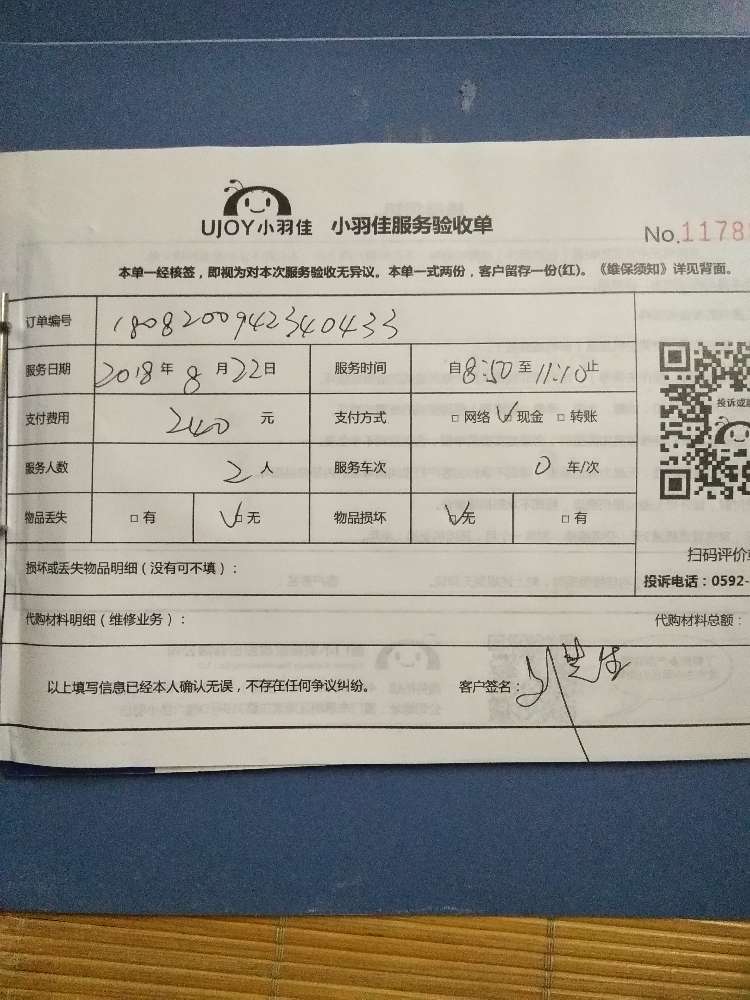 UJOY小羽佳 小羽佳服务验收单
No.1178
本单一经核签，即视为对本次服务验收无异议。本单一式两份，客户留存一份(红)。《维保须知》详见背面。
订单编号 1808200942340433
服务日期 2018年8月22日 服务时间 自8:50至11:10止
投诉或
支付费用 240元 支付方式 □网络 ✓现金 □转账
服务人数 2人 服务车次 0车/次
物品丢失 □有 ☑无 物品损坏 ☑无 □有
扫码评价
损坏或丢失物品明细（没有可不填）：
投诉电话：0592-
代购材料明细（维修业务）： 代购材料总额：
以上填写信息已经本人确认无误，不存在任何争议纠纷。 客户签名：